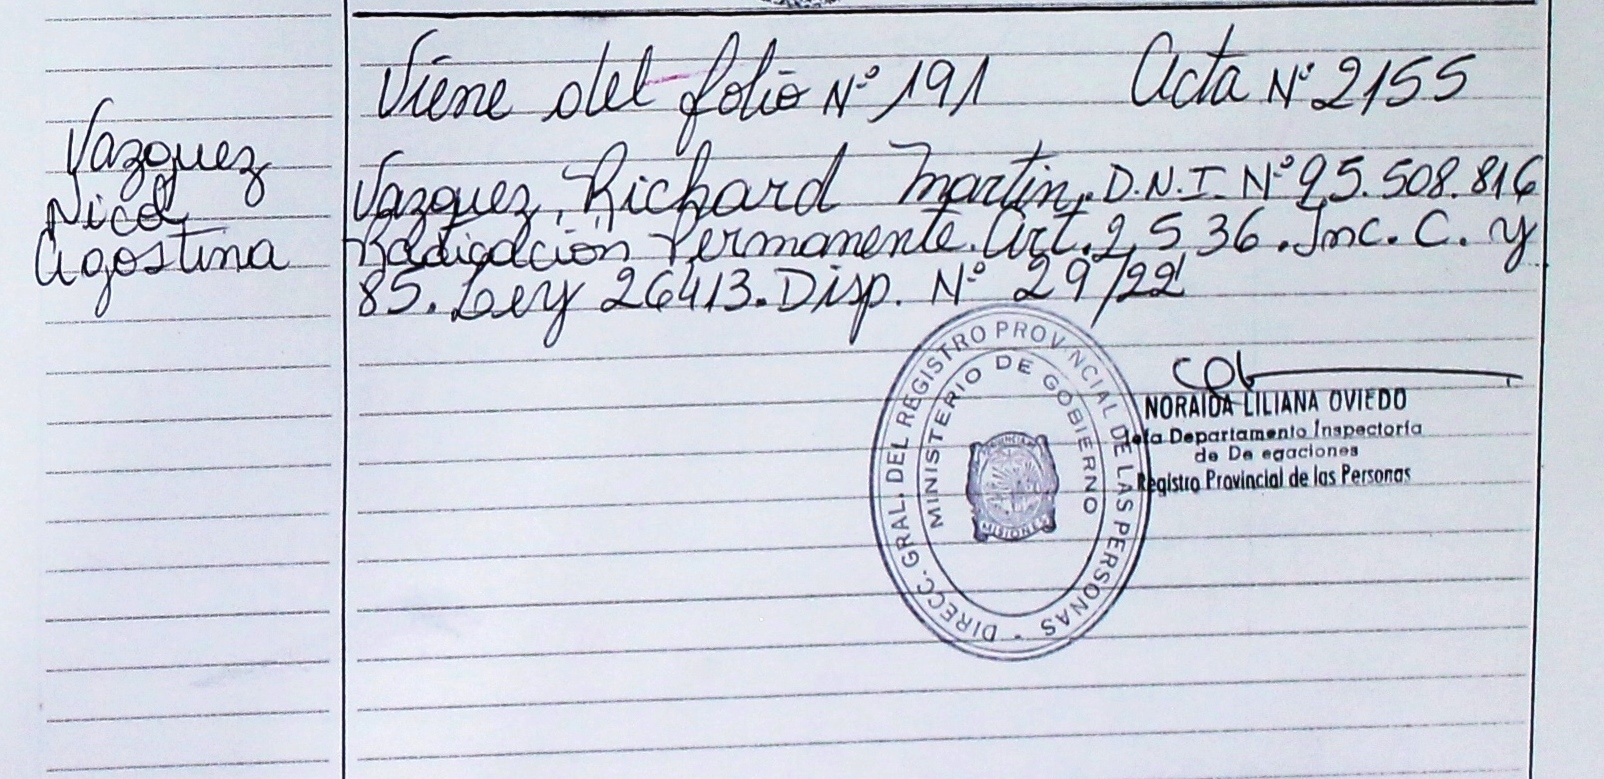 Viene del folio Nº 191 Acta Nº 2155
Vazquez
Nicol
Agostina
Vazquez, Richard Martin. D.N.I. Nº 95.508.816
Radicación Permanente. Art. 2, 5 36. Inc. C. y
85. Ley 26413. Disp. Nº 29/22
DIRECC. GRAL. DEL REGISTRO PROVINCIAL DE LAS PERSONAS
MINISTERIO DE GOBIERNO
MISIONES
NORAIDA LILIANA OVIEDO
Jefa Departamento Inspectoría
de De egaciones
Registro Provincial de las Personas